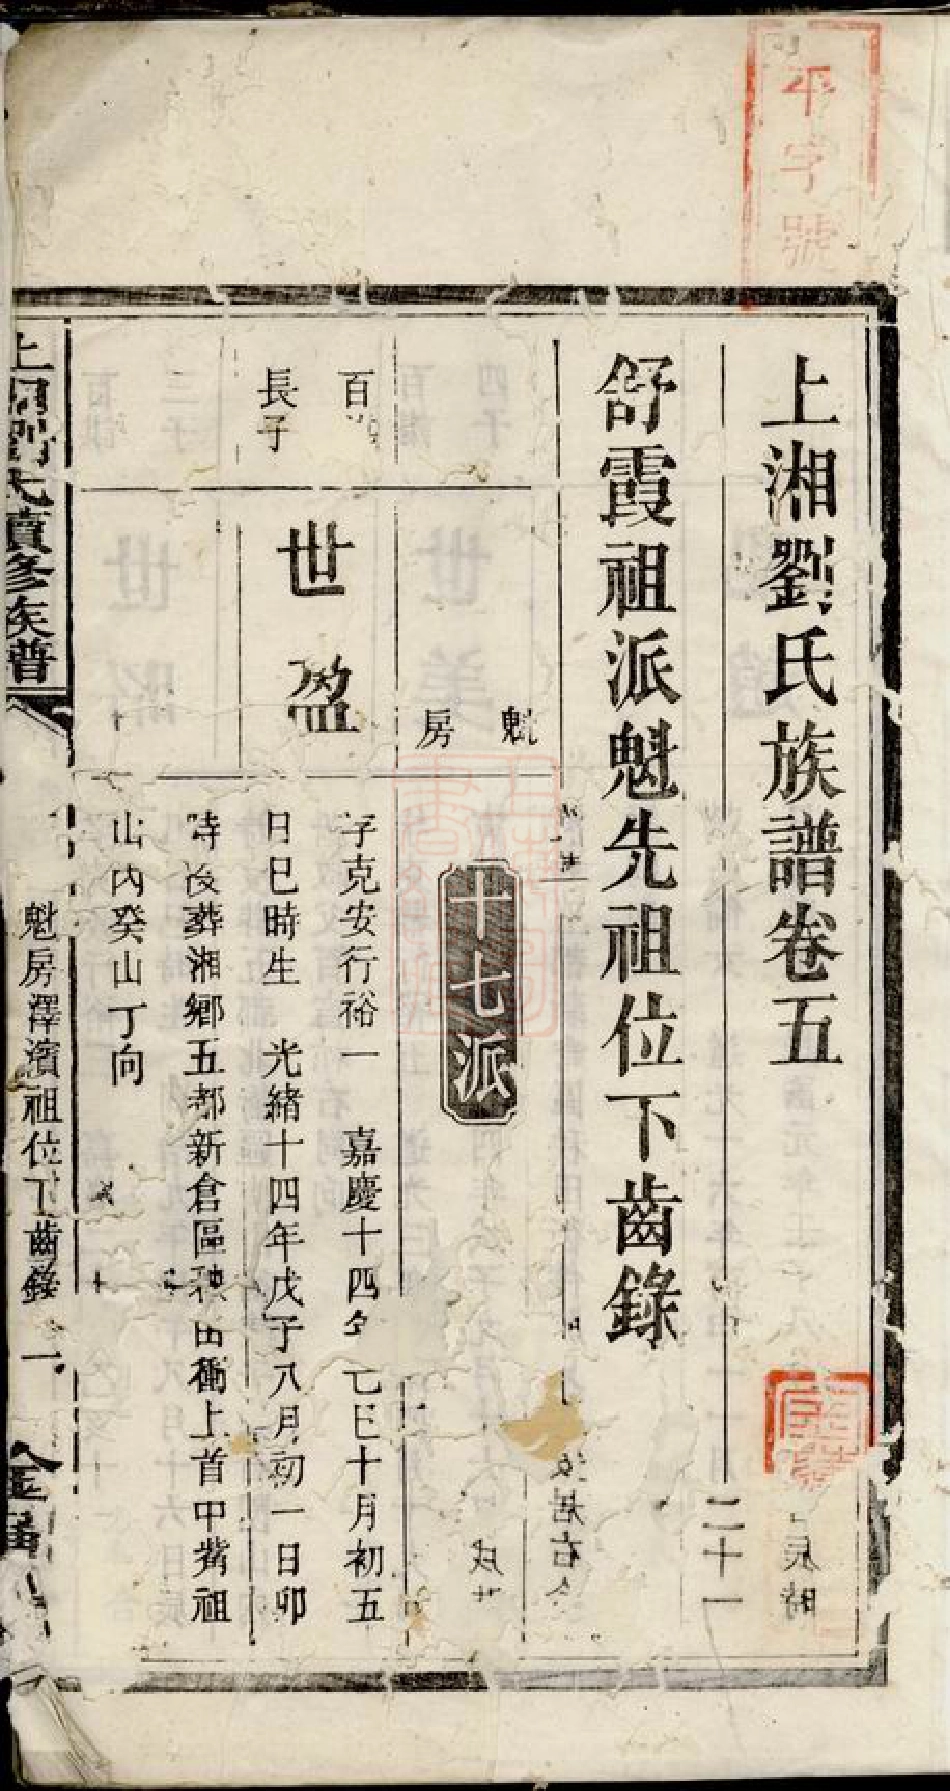 平字號
上湘劉氏族譜卷五
舒霞祖派魁先祖位下齒錄
二十一
魁房
十七派
百
長子
世盈
字克安行裕一 嘉慶十四 己巳十月初五
日巳時生 光緒十四年戊子八月初一日卯
時没葬湘鄉五都新倉區 田衝上首中嘴祖
山内癸山丁向
上湘劉氏續修族譜
魁房澤濱祖位下齒錄 一